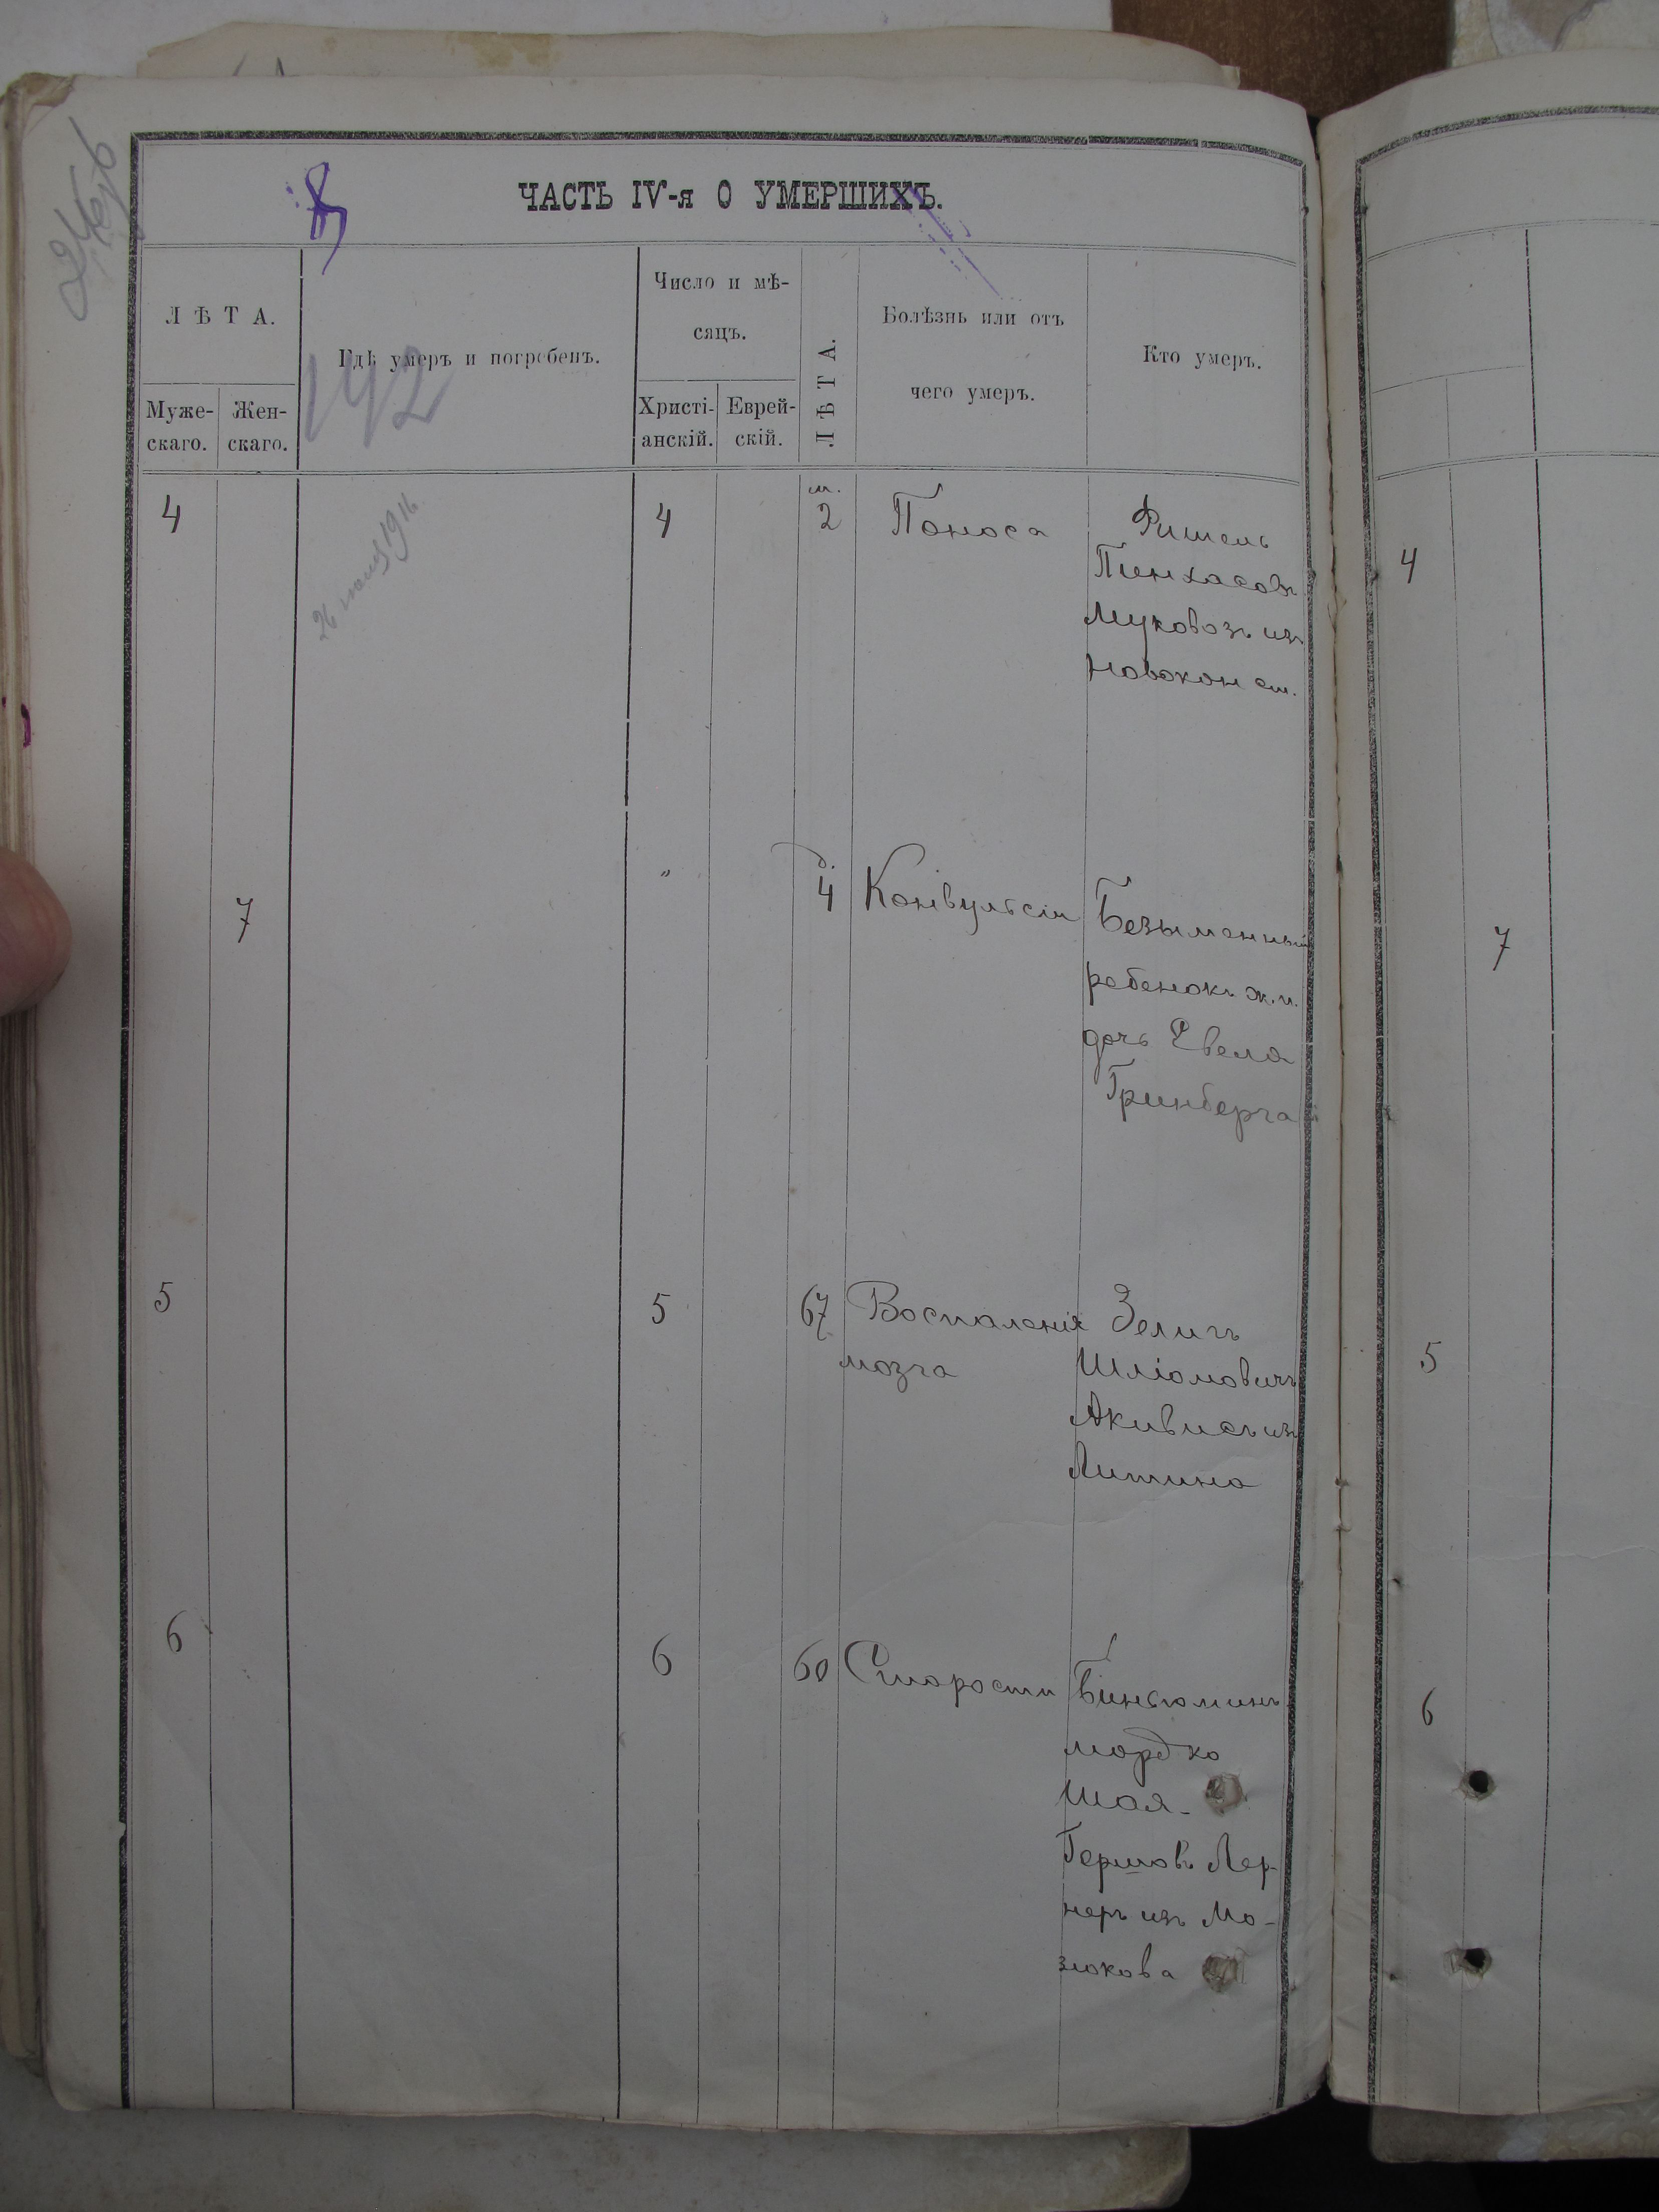 ЧАСТЬ IV-я О УМЕРШИХЪ.
ЛѢТА.
Муже-
скаго.
Жен-
скаго.
Гдѣ умеръ и погребенъ.
Число и мѣ-
сяцъ.
Христі-
анскій.
Еврей-
скій.
ЛѢТА.
Болѣзнь или отъ
чего умеръ.
Кто умеръ.
142
1916
4
4
м.
2
Поноса
Фишель
Пинхасовъ
Муковозъ изъ
Новокон ст.
7
"
д.
4
Конвульсіи
Безыменный
ребенокъ ж. п.
дочь Евеля
Гринберга
5
5
67
Воспаленія
мозга
Зелигъ
Шліомовичъ
Акивисъ изъ
Литина
6
6
60
Старости
Биньюминъ
Мордко
Шая-
Гершовъ Лер-
неръ изъ Мо-
зюкова
4
7
5
6